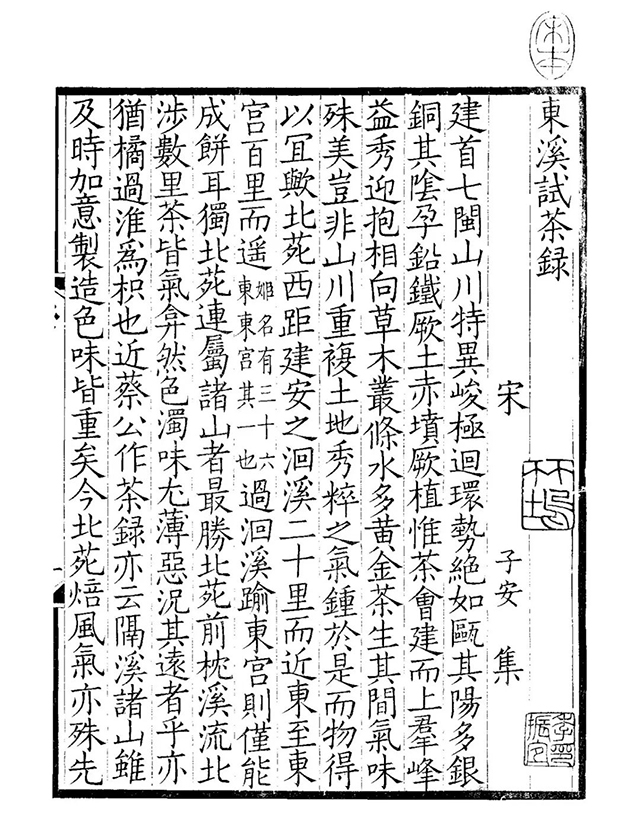 東溪試茶録
宋 子安 集
建首七閩山川特異峻極迴環勢絶如甌其陽多銀
銅其陰孕鉛鐵厥土赤墳厥植惟茶會建而上羣峰
益秀迎抱相向草木叢條水多黄金茶生其間氣味
殊美豈非山川重複土地秀粹之氣鍾於是而物得
以冝歟北苑西距建安之洄溪二十里而近東至東
宫百里而遥姬名有三十六東東宫其一也過洄溪踰東宫則僅能
成餅耳獨北苑連屬諸山者最勝北苑前枕溪流北
涉數里茶皆氣弇然色濁味尤薄惡況其遠者乎亦
猶橘過淮爲枳也近蔡公作茶録亦云隔溪諸山雖
及時加意製造色味皆重矣今北苑焙風氣亦殊先